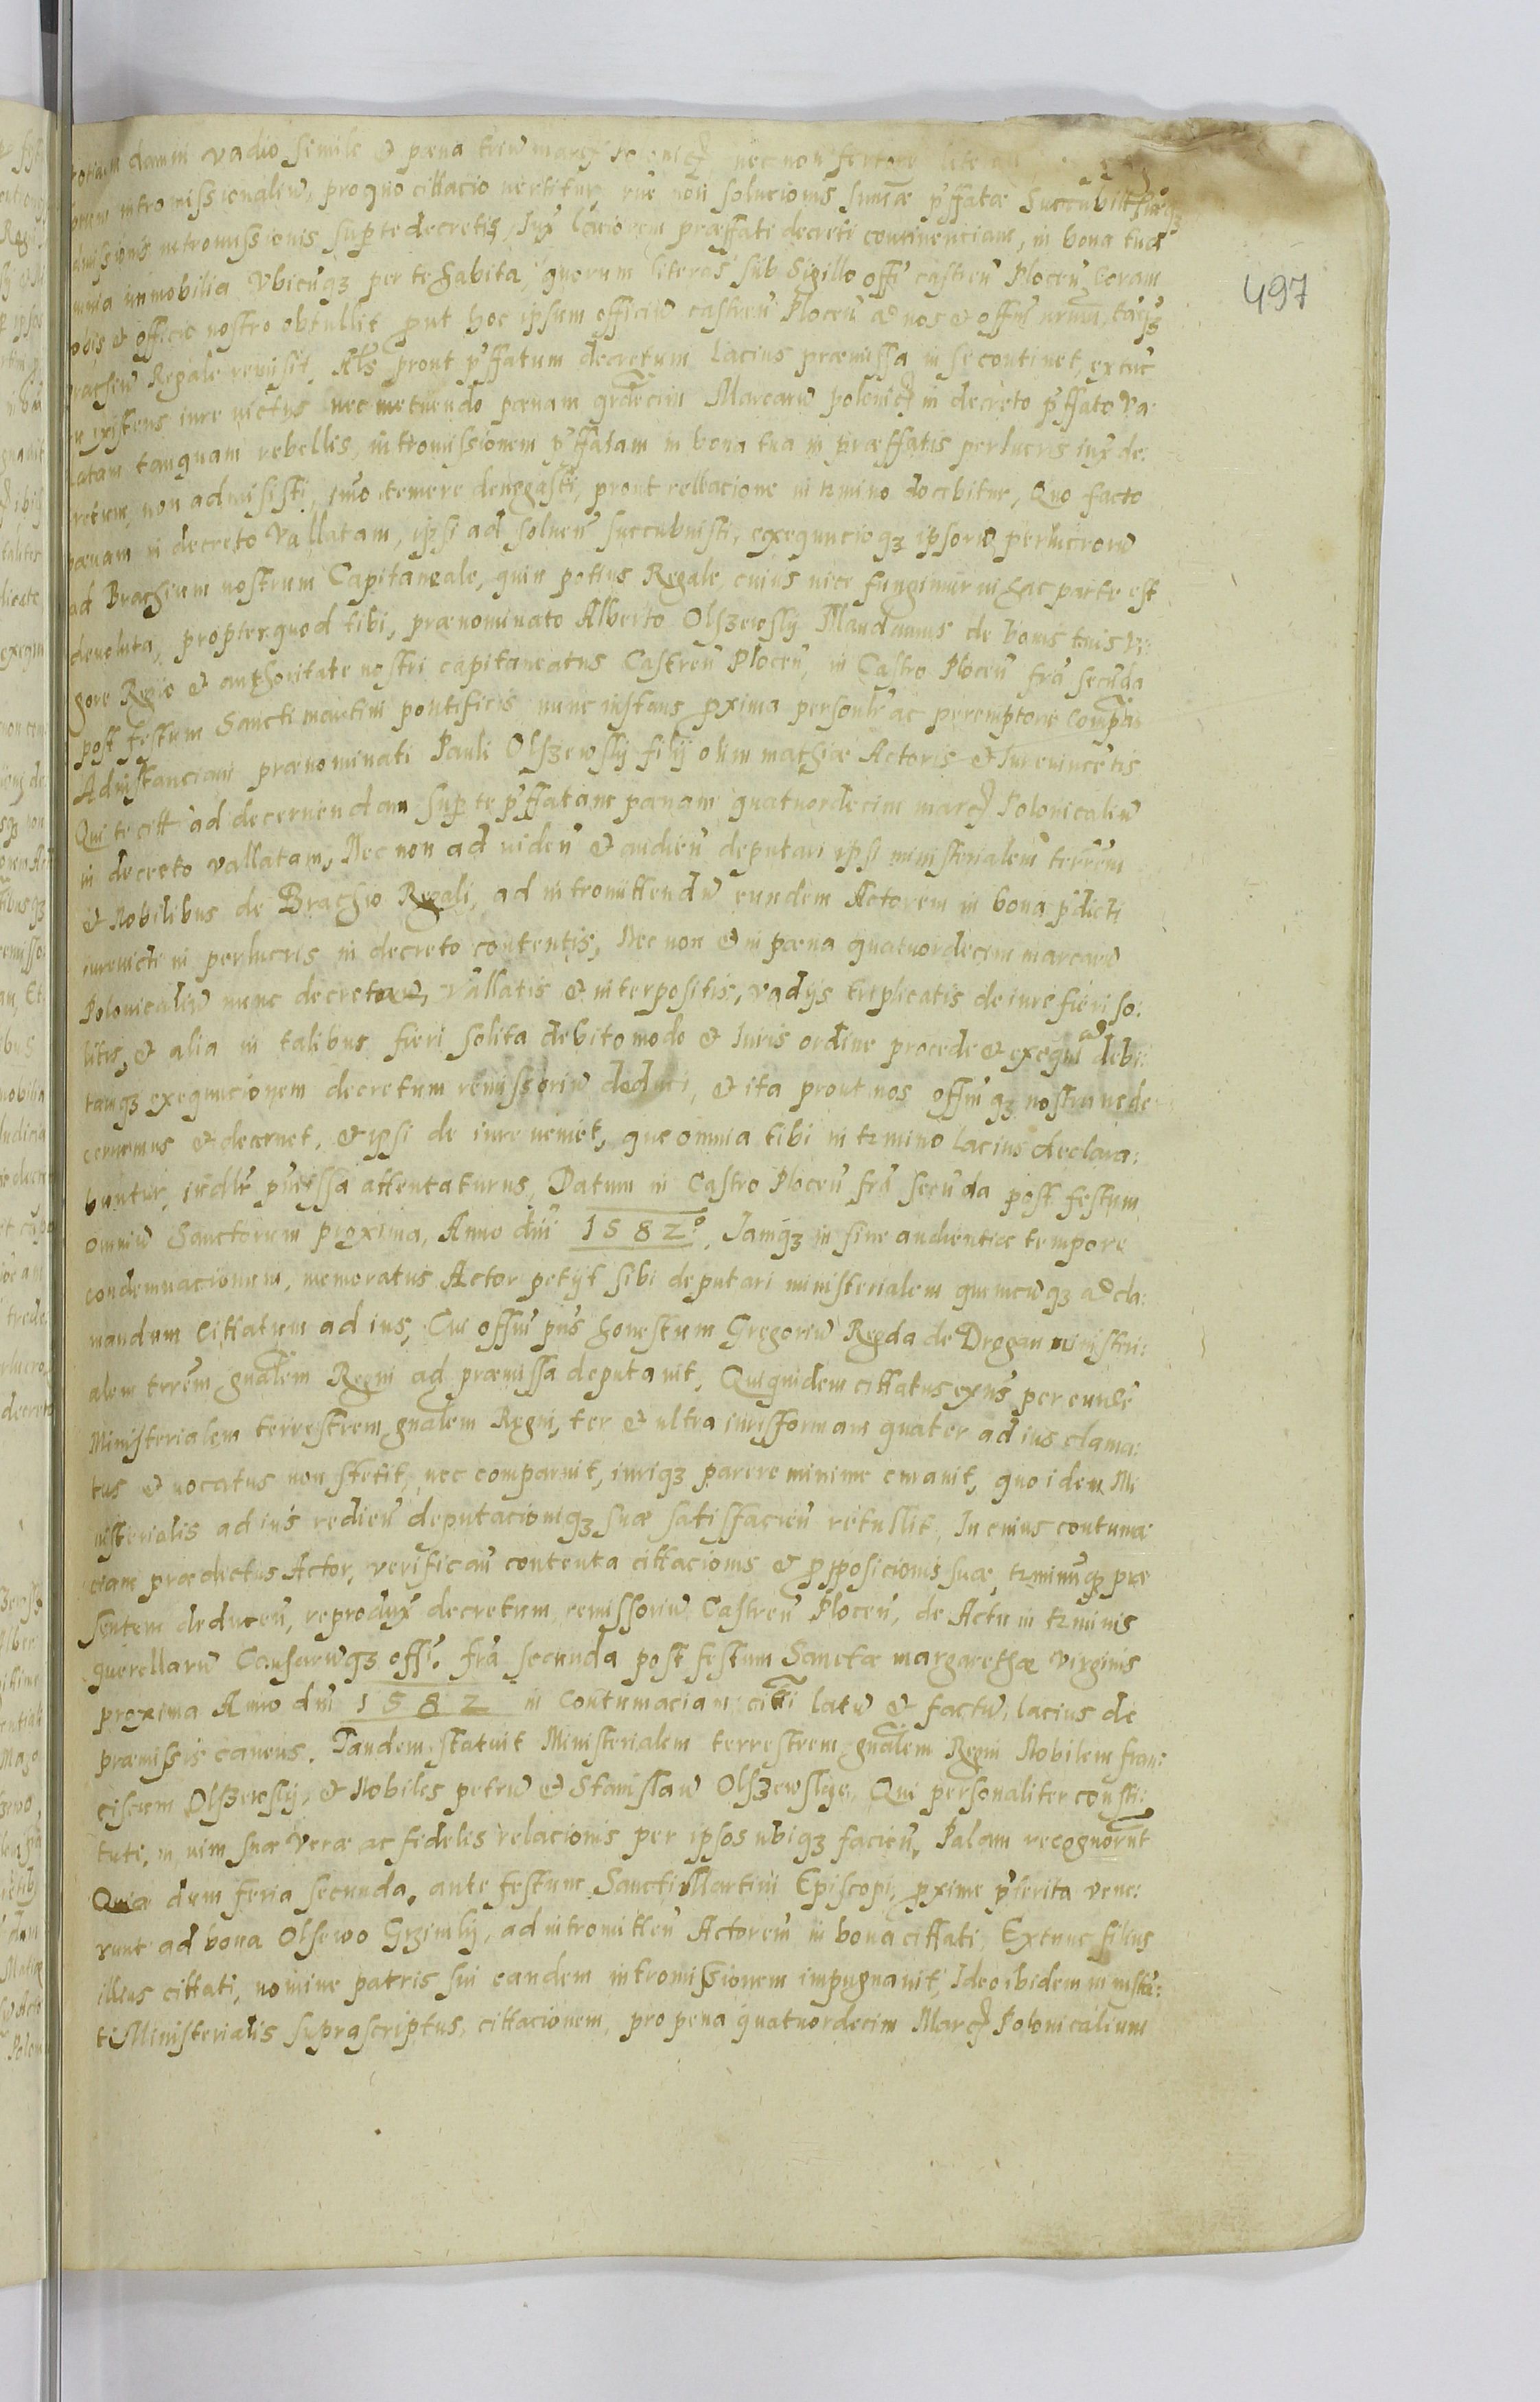 497
damni vadio simile & pœna triu marc nec non
intromissionaliu, pro quo cittacio vertitur, solucionis sumæ p̃ffatæ
intromissionis sup te decretis, Iux̃ laciorem præffati decreti continenciam, in bona tua
immobilia Vbicuqꝫ per te habita, quorum literas sub Sigillo offi castreñ Ploceñ Coram
& officio nostro obtullit put hoc ipsum officiũ castreñ Ploceñ ad nos & offiũ nrum,
Regale remisit, Als prout p̃ffatum decretum lacius præmissa in se continet, extuc
existens iure victus nec metuendo pœnam Marcarũ polonic in decreto p̃ffato va
latam tanquam rebellis, intromissionem p̃ffatam in bona tua in præffatis perlucris iux̃ de:
cretum, non admisisti, imo temere denegasti, prout rellacione in tr̃mino docebitur, Quo facto
pœnam in decreto Vallatam, ipsi ad solueñ succubuisti, exequucioqꝫ ipsorũ perlucrorũ
ad Brachium nostrum Capitaneale, quin potius Regale, cuius vice fungimur in hac parte est
deuoluta, propter quod tibi, prænominato Alberto Olszewsky Mandamus de bonis tuis vi:
gore Regio & authoritate nostri capitaneatus Castreñ Ploceñ, in Castro Ploceñ fr̃a secũda
post festum Sancti martini pontificis nunc instans pxima personlr̃ ac peremptorie Compar
Adinstanciam prænominati Pauli Olszewsky filij olim mathiæ Actoris & Iureuincẽtis
Qui te citt ad decernendam sup te p̃ffatam pœnam quatuordecim marc Polonicaliũ
in decreto vallatam, Nec non ad videñ & audieñ deputari ipsi ministerialem terr̃em
& Nobilibus de Brachio Regali, ad intromittendũ eundem Actorem in bona p̃dicti
iureuicti in perlucris in decreto contentis, Nec non & in pœna quatuordecim marcarũ
Polonicaliũ nunc vallatis & interpositis, vadijs triplicatis de iure fieri so:
litis, & alia in talibus fieri solita debito modo & Iuris ordine procede & exequi ad debi:
tamqꝫ exequucionem decretum remissoriũ deduci, & ita prout nos offiũqꝫ nostrum de
cernemus & decernet, & ipsi de iure veniet, que omnia tibi in tr̃mino lacius declara:
buntur, iudlr̃ p̃missa attentaturus, Datum in Castro Ploceñ fr̃a secũda post festum
omniũ Sanctorum proxima, Anno dñi 1582º. Iamqꝫ in fine audientiæ tempore
condemnacionum, memoratus Actor petijt sibi deputari ministerialem quemcũqꝫ ad cla:
mandum Cittatum ad ius, Cui offiũ p̃ns honestum Gregoriũ Regda de Drogan ministeri:
alem trr̃em gñalem Regni ad præmissa deputauit, Quiquidem cittatus ex̃ns per eundẽ
Ministerialem terrestrem gñalem Regni, ter & ultra iurisformam quater ad ius clama:
tus & vocatus non stetit, nec comparuit, iuriqꝫ parere minime curauit, quo idem Mi
nisterialis ad ius redieñ deputacioniqꝫ suæ satisfacieñ retullit, In cuius contuma
ciam prædictus Actor, verificañ contenta cittacionis & pposicionis suæ, tr̃minũqꝫ præ
sentem deduceñ, reprodux̃ decretum remissoriũ Castreñ Ploceñ, de Actu in tr̃minis
querellarũ Causarũqꝫ offi. fr̃a secunda post festum Sanctæ margarethæ virginis
proxima Anno dñi 1582 in Contumaciam citti latũ & factũ, lacius de
præmissis canens. Tandem statuit Ministerialem terrestrem gñalem Regni Nobilem fran:
ciscum Olszewsky, & Nobiles petrũ & Stanislaũ Olszewskye, Qui personaliter consti:
tuti, in vim suæ veræ ac fidelis relacionis per ipsos ubiqꝫ facieñ, Palam recognorũt
Quia dum feria secunda, ante festum Sancti Martini Episcopi, pxime p̃terita vene:
runt ad bona Olsewo Grzimky, ad intromitteñ Actorem in bona cittati, Extunc filius
illius cittati, nomine patris sui eandem intromissionem impugnauit, Ideo ibidem in insta:
ti Ministerialis suprascriptus, cittacionem, pro pena quatuordecim Marc Polonicalium